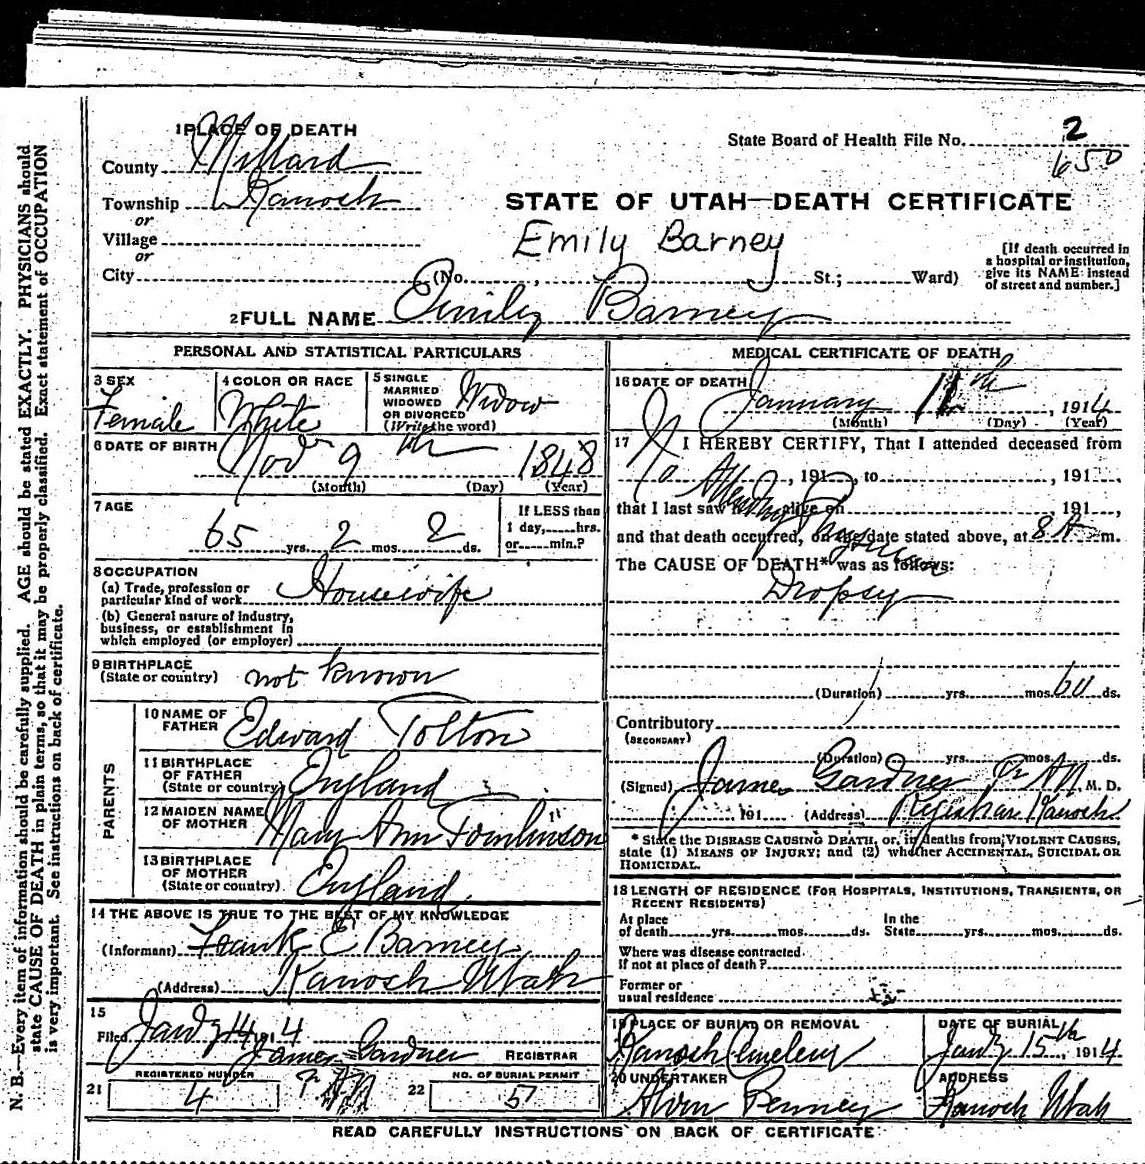 N. B.—Every item of information should be carefully supplied. AGE should be stated EXACTLY. PHYSICIANS should
state CAUSE OF DEATH in plain terms, so that it may be properly classified. Exact statement of OCCUPATION
is very important. See instructions on back of certificate.
1 PLACE OF DEATH
County Millard
Township Kanosh
or
Village
or
City (No. , St.; Ward)
State Board of Health File No. 2
650
STATE OF UTAH—DEATH CERTIFICATE
Emily Barney
[If death occurred in
a hospital or institution,
give its NAME instead
of street and number.]
2 FULL NAME Emily Barney
PERSONAL AND STATISTICAL PARTICULARS
3 SEX
Female
4 COLOR OR RACE
White
5 SINGLE
MARRIED
WIDOWED
OR DIVORCED
(Write the word)
Widow
6 DATE OF BIRTH
Nov 9th 1848
(Month) (Day) (Year)
7 AGE
65 yrs. 2 mos. 2 ds.
If LESS than
1 day, hrs.
or min.?
8 OCCUPATION
(a) Trade, profession or
particular kind of work Housewife
(b) General nature of industry,
business, or establishment in
which employed (or employer)
9 BIRTHPLACE
(State or country) not known
PARENTS
10 NAME OF
FATHER Edward Tolton
11 BIRTHPLACE
OF FATHER
(State or country) England
12 MAIDEN NAME
OF MOTHER Mary Ann Tomlinson
13 BIRTHPLACE
OF MOTHER
(State or country) England
14 THE ABOVE IS TRUE TO THE BEST OF MY KNOWLEDGE
(Informant) Frank E Barney
(Address) Kanosh Utah
15
Filed Jany 14 1914
James Gardner REGISTRAR
21 REGISTERED NUMBER
4
22 NO. OF BURIAL PERMIT
5
MEDICAL CERTIFICATE OF DEATH
16 DATE OF DEATH
January 11th, 1914
(Month) (Day) (Year)
17 I HEREBY CERTIFY, That I attended deceased from
, 191 , to , 191 ,
that I last saw h alive on , 191 ,
No Attending Physician
and that death occurred, on the date stated above, at 8 A m.
The CAUSE OF DEATH* was as follows:
Dropsy
(Duration) yrs. mos. 60 ds.
Contributory
(SECONDARY)
(Duration) yrs. mos. ds.
(Signed) James Gardner M. D.
191 (Address) Registrar Kanosh
* State the DISEASE CAUSING DEATH, or, in deaths from VIOLENT CAUSES,
state (1) MEANS OF INJURY; and (2) whether ACCIDENTAL, SUICIDAL OR
HOMICIDAL.
18 LENGTH OF RESIDENCE (FOR HOSPITALS, INSTITUTIONS, TRANSIENTS, OR
RECENT RESIDENTS)
At place
of death yrs. mos. ds.
In the
State yrs. mos. ds.
Where was disease contracted
if not at place of death?
Former or
usual residence
19 PLACE OF BURIAL OR REMOVAL
Kanosh Cemetery
DATE OF BURIAL
Jany 15th, 1914
20 UNDERTAKER
Alvin Penney
ADDRESS
Kanosh Utah
READ CAREFULLY INSTRUCTIONS ON BACK OF CERTIFICATE